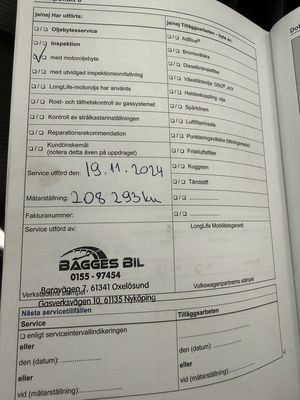 ja/nej Har utförts:
ja/nej Tilläggsarbeten – byte av
Oljebytesservice
AdBlue®
Inspektion
Bromsvätska
med motoroljebyte
Dieselbränslefilter
med utvidgad inspektionsomfattning
Växellådsolja: DSQ®, ATX
LongLife-motorolja har använts
Haldexkoppling olje
Rost- och täthetskontroll av gassystemet
Spårktrem
Kontroll av strålkastarinställningen
Luftfilterinsats
Reparationsrekommendation
Punkteringsvätska (tätningsmedel)
Kundönskemål
(notera detta även på uppdraget)
Friskluftsfilter
Kuggrem
Service utförd den: 19.11.2024
Tändstift
Mätarställning: 208 293 km
Fakturanummer:
Service utförd av:
LongLife Mobilitetsgaranti
BAGGES BIL
0155 - 97454
Baravägen 7, 61341 Oxelösund
Verkstadens stämpel
Volkswagenpartnerns stämpel
Gasverksvägen 10, 61135 Nyköping
Nästa servicetillfällen
Service
Tilläggsarbeten
enligt serviceintervallindikeringen
eller
eller
den (datum):
den (datum):
eller
eller
vid (mätarställning):
vid (mätarställning):